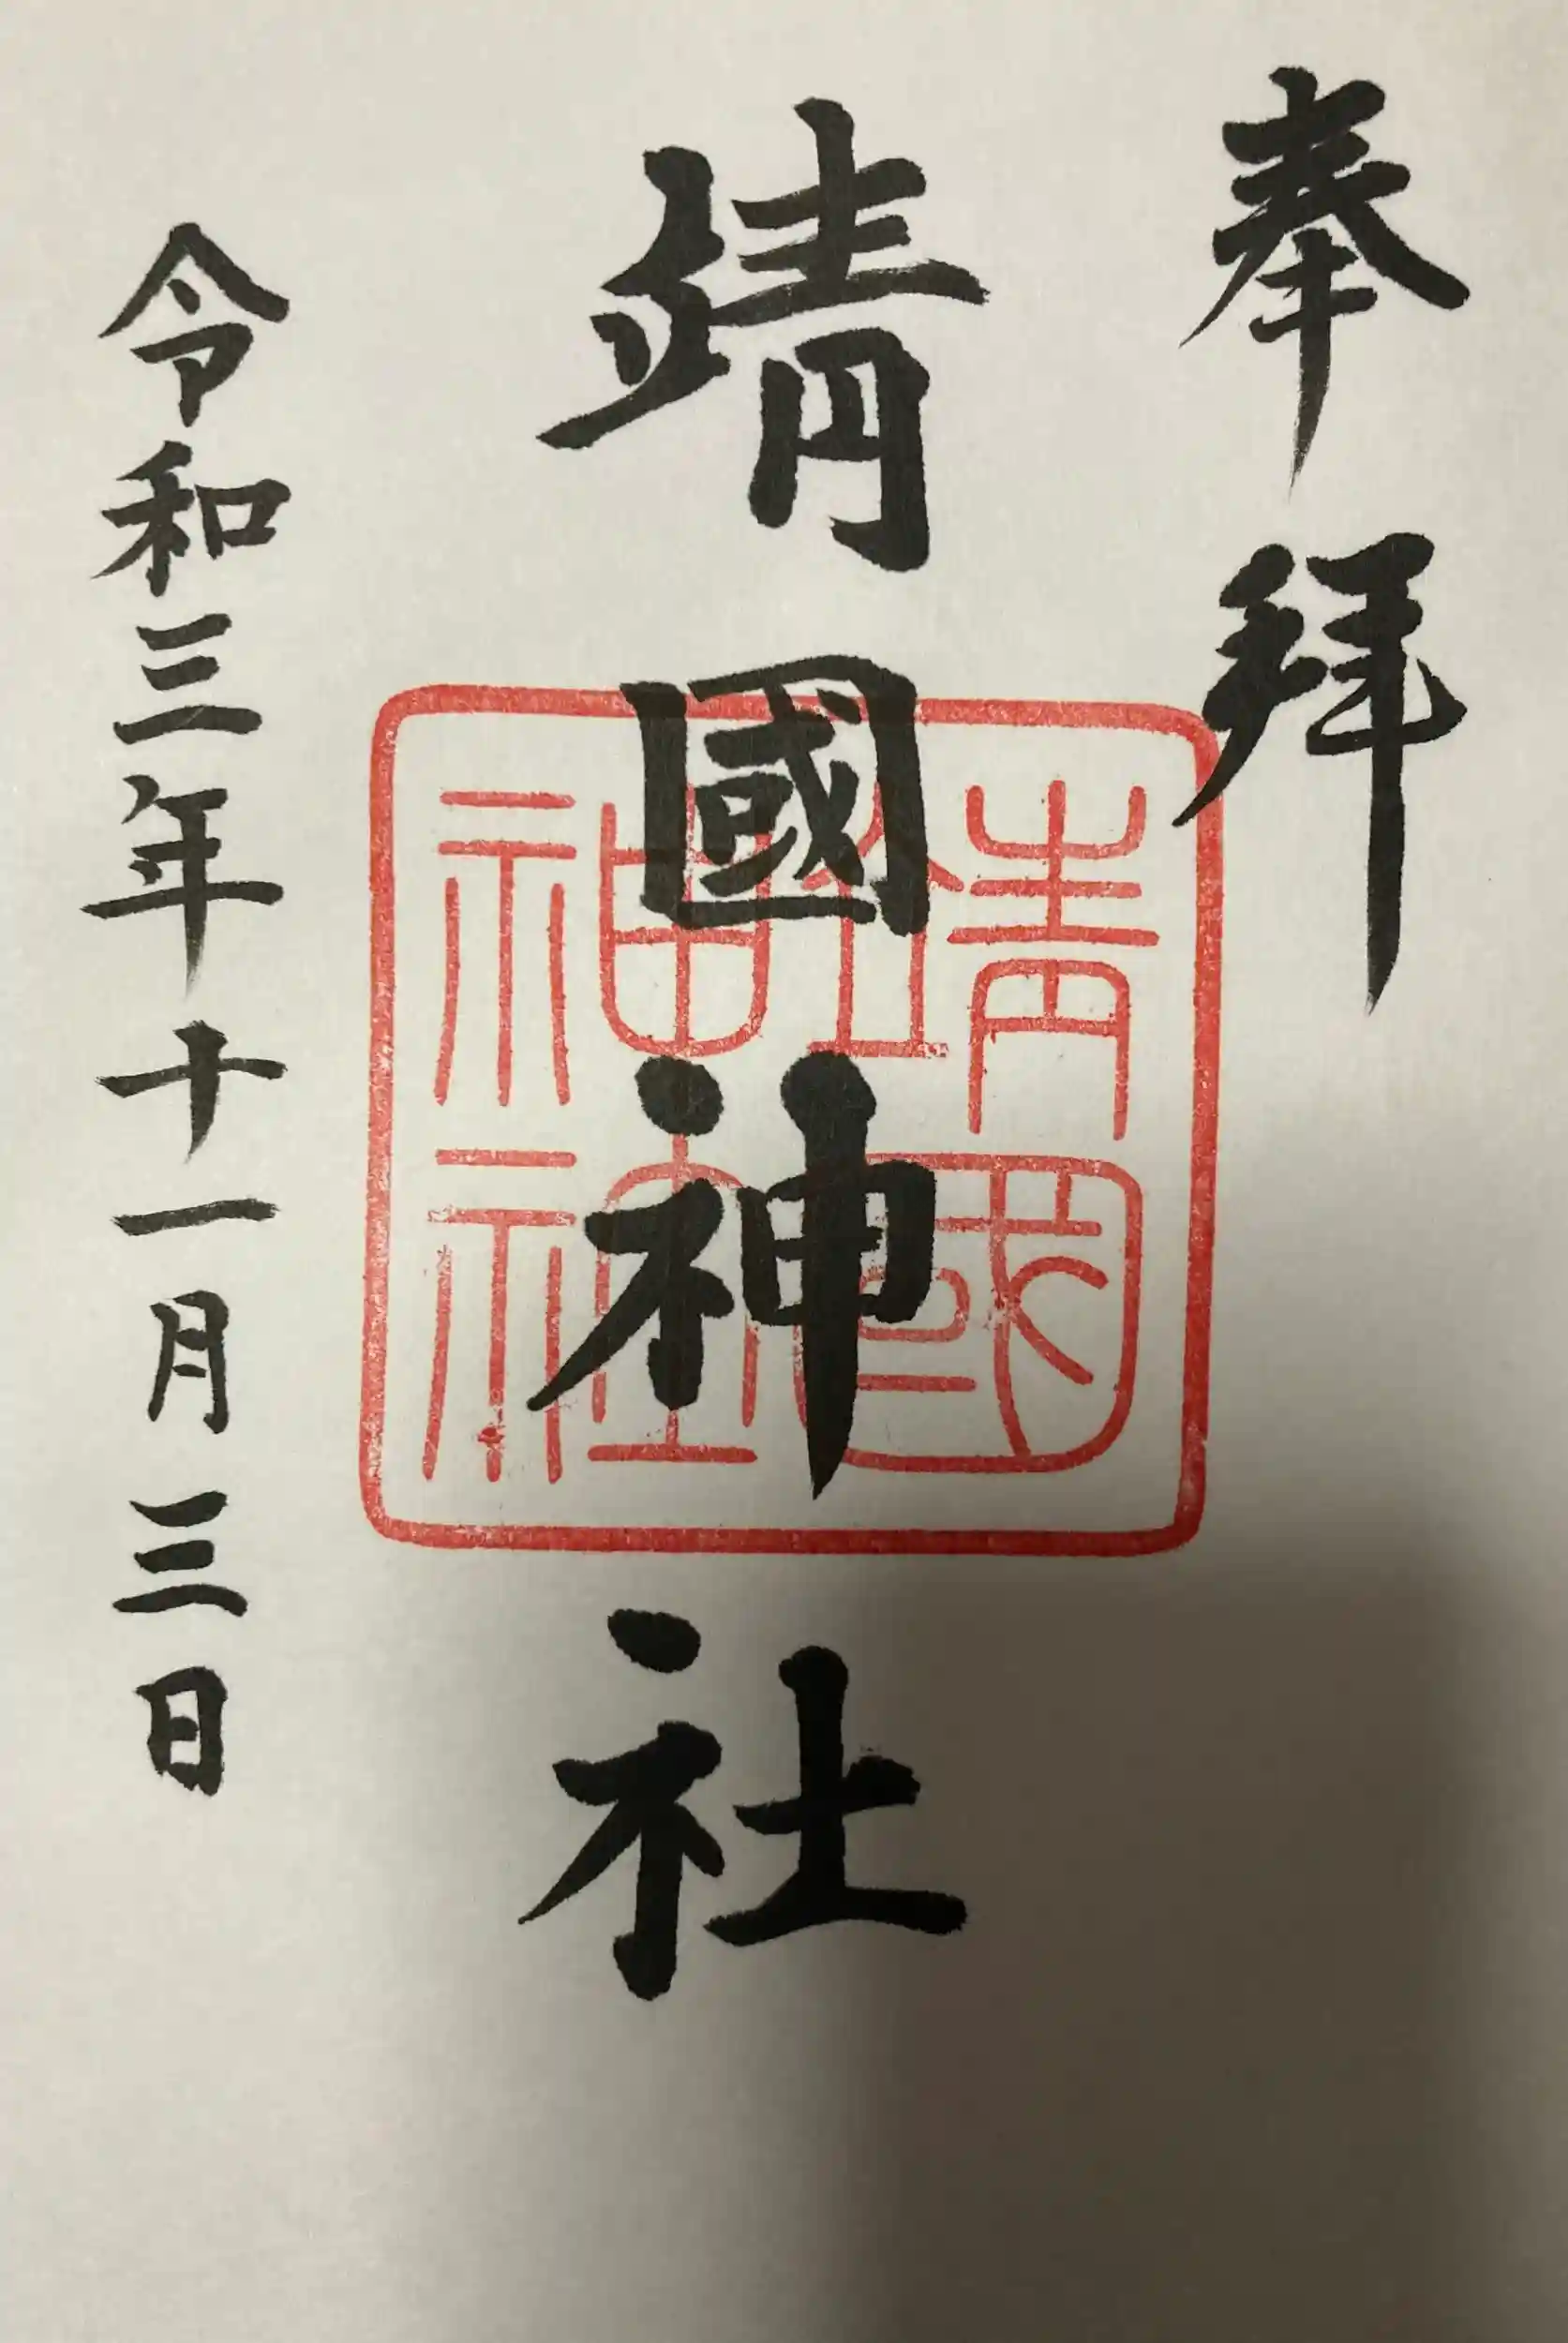 奉拜
靖國神社
令和三年十一月三日
靖國
神社